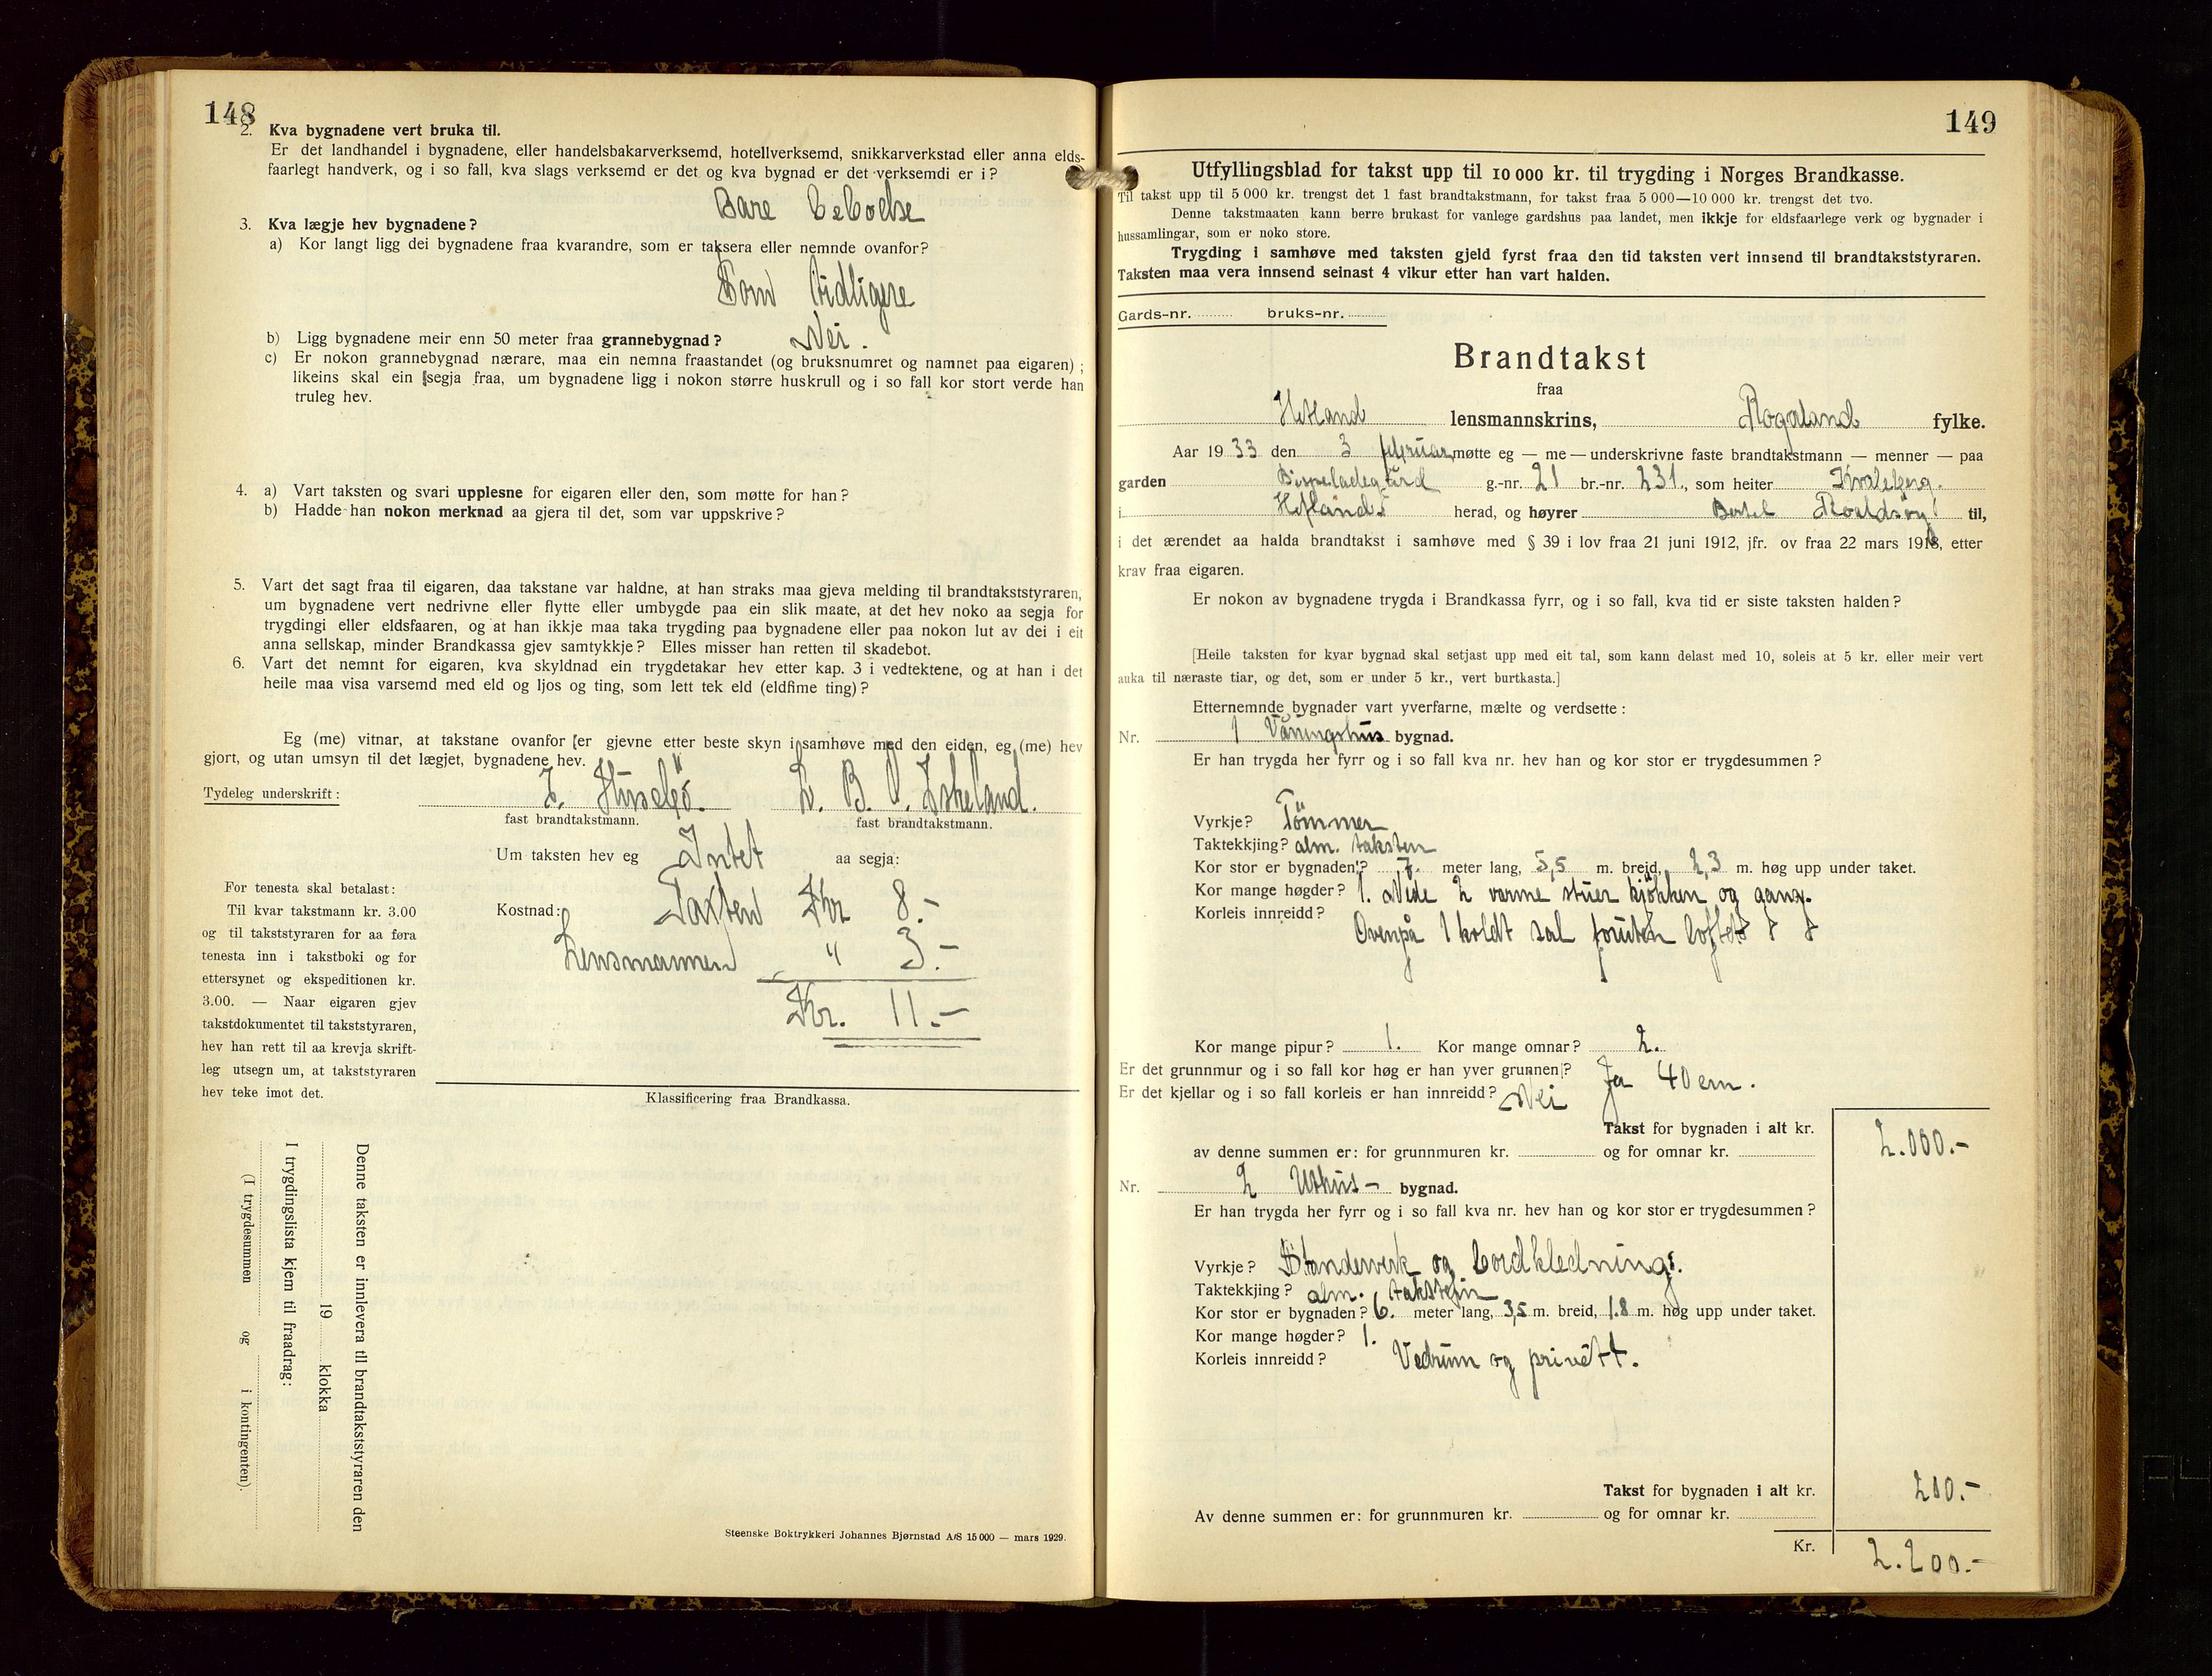 148
2. Kva bygnadene vert bruka til.
Er det landhandel i bygnadene, eller handelsbakarverksemd, hotellverksemd, snikkarverkstad eller anna elds-
faarlegt handverk, og i so fall, kva slags verksemd er det og kva bygnad er det verksemdi er i?
Bare beboelse
3. Kva lægje hev bygnadene?
a) Kor langt ligg dei bygnadene fraa kvarandre, som er taksera eller nemnde ovanfor?
Som tidligere
b) Ligg bygnadene meir enn 50 meter fraa grannebygnad? Nei.
c) Er nokon grannebygnad nærare, maa ein nemna fraastandet (og bruksnumret og namnet paa eigaren);
likeins skal ein segja fraa, um bygnadene ligg i nokon større huskrull og i so fall kor stort verde han
truleg hev.
4. a) Vart taksten og svari upplesne for eigaren eller den, som møtte for han?
b) Hadde han nokon merknad aa gjera til det, som var uppskrive?
5. Vart det sagt fraa til eigaren, daa takstane var haldne, at han straks maa gjeva melding til brandtakststyraren,
um bygnadene vert nedrivne eller flytte eller umbygde paa ein slik maate, at det hev noko aa segja for
trygdingi eller eldsfaaren, og at han ikkje maa taka trygding paa bygnadene eller paa nokon lut av dei i eit
anna sellskap, minder Brandkassa gjev samtykkje? Elles misser han retten til skadebot.
6. Vart det nemnt for eigaren, kva skyldnad ein trygdetakar hev etter kap. 3 i vedtektene, og at han i det
heile maa visa varsemd med eld og ljos og ting, som lett tek eld (eldfime ting)?
Eg (me) vitnar, at takstane ovanfor er gjevne etter beste skyn i samhøve med den eiden, eg (me) hev
gjort, og utan umsyn til det lægjet, bygnadene hev.
Tydeleg underskrift: Husebø. B. Iskeland.
fast brandtakstmann. fast brandtakstmann.
Um taksten hev eg Intet aa segja:
Kostnad: Taxten Kr 8.-
Lensmannen " 3.-
Kr. 11.-
For tenesta skal betalast:
Til kvar takstmann kr. 3.00
og til takststyraren for aa føra
tenesta inn i takstboki og for
ettersynet og ekspeditionen kr.
3.00. — Naar eigaren gjev
takstdokumentet til takststyraren,
hev han rett til aa krevja skrift-
leg utsegn um, at takststyraren
hev teke imot det.
Klassificering fraa Brandkassa.
Denne taksten er innlevera til brandtakststyraren den
19 klokka
I trygdingslista kjem til fraadrag:
(I trygdesummen og i kontingenten).
Steenske Boktrykkeri Johannes Bjørnstad A/S 15 000 — mars 1929.
149
Utfyllingsblad for takst upp til 10 000 kr. til trygding i Norges Brandkasse.
Til takst upp til 5 000 kr. trengst det 1 fast brandtakstmann, for takst fraa 5 000—10 000 kr. trengst det tvo.
Denne takstmaaten kann berre brukast for vanlege gardshus paa landet, men ikkje for eldsfaarlege verk og bygnader i
hussamlingar, som er noko store.
Trygding i samhøve med taksten gjeld fyrst fraa den tid taksten vert innsend til brandtakststyraren.
Taksten maa vera innsend seinast 4 vikur etter han vart halden.
Gards-nr. bruks-nr.
Brandtakst
fraa
Hetland lensmannskrins, Rogaland fylke.
Aar 1933 den 3 februar møtte eg — me — underskrivne faste brandtakstmann — menner — paa
garden Bispeladegård g.-nr. 21 br.-nr. 231, som heiter Kvaleberg.
i Hetland herad, og høyrer Bertel Roaldsøy til,
i det ærendet aa halda brandtakst i samhøve med § 39 i lov fraa 21 juni 1912, jfr. ov fraa 22 mars 1918, etter
krav fraa eigaren.
Er nokon av bygnadene trygda i Brandkassa fyrr, og i so fall, kva tid er siste taksten halden?
[Heile taksten for kvar bygnad skal setjast upp med eit tal, som kann delast med 10, soleis at 5 kr. eller meir vert
auka til næraste tiar, og det, som er under 5 kr., vert burtkasta.]
Etternemnde bygnader vart yverfarne, mælte og verdsette:
Nr. 1 Våningshus bygnad.
Er han trygda her fyrr og i so fall kva nr. hev han og kor stor er trygdesummen?
Vyrkje? Tömmer
Taktekkjing? alm. taksten
Kor stor er bygnaden? 7. meter lang, 5,5 m. breid, 2,3 m. høg upp under taket.
Kor mange høgder? 1. Nede 2 varme stuer kjökken og gang.
Korleis innreidd?
Ovenpå 1 koldt sal foruten loftet
Kor mange pipur? 1. Kor mange omnar? 2.
Er det grunnmur og i so fall kor høg er han yver grunnen? Ja 40 cm.
Er det kjellar og i so fall korleis er han innreidd? Nei
Takst for bygnaden i alt kr. 2.000.-
av denne summen er: for grunnmuren kr. og for omnar kr.
Nr. 2 Uthus - bygnad.
Er han trygda her fyrr og i so fall kva nr. hev han og kor stor er trygdesummen?
Vyrkje? Standerverk og bordkledning.
Taktekkjing? alm. takstein
Kor stor er bygnaden? 6. meter lang, 3,5 m. breid, 1.8 m. høg upp under taket.
Kor mange høgder? 1.
Korleis innreidd? Vedrum og privétt.
Takst for bygnaden i alt kr. 200.-
Av denne summen er: for grunnmuren kr. og for omnar kr.
Kr. 2.200.-